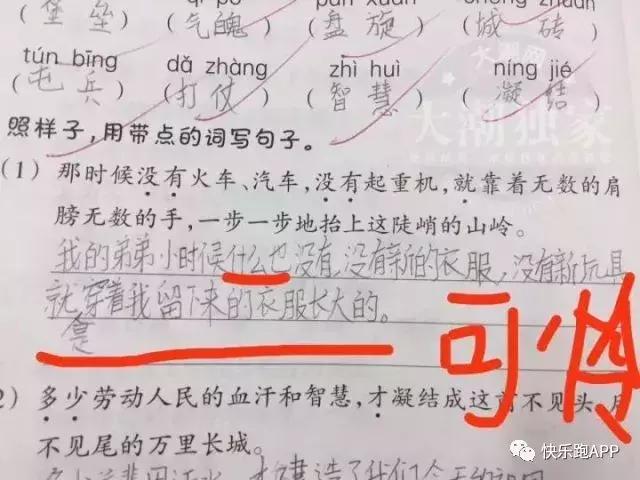 (堡垒) (气魄) (盘旋) (城砖)
tún bīng dǎ zhàng zhì huì níng jié
(屯兵) (打仗) (智慧) (凝结)
照样子,用带点的词写句子。
(1) 那时候没有火车、汽车,没有起重机,就靠着无数的肩
膀无数的手,一步一步地抬上这陡峭的山岭。
我的弟弟小时候什么也没有,没有新的衣服,没有新玩具
就穿着我留下来的衣服长大的。
可怜
2) 多少劳动人民的血汗和智慧,才凝结成这前不见头,
不见尾的万里长城。
大潮网
大潮独家
快乐跑APP